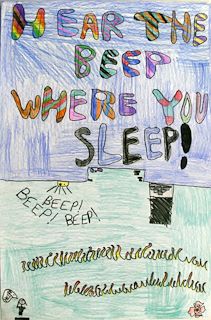 HEAR THE
BEEP
WHERE YOU
SLEEP!
BEEP!
BEEP! BEEP!